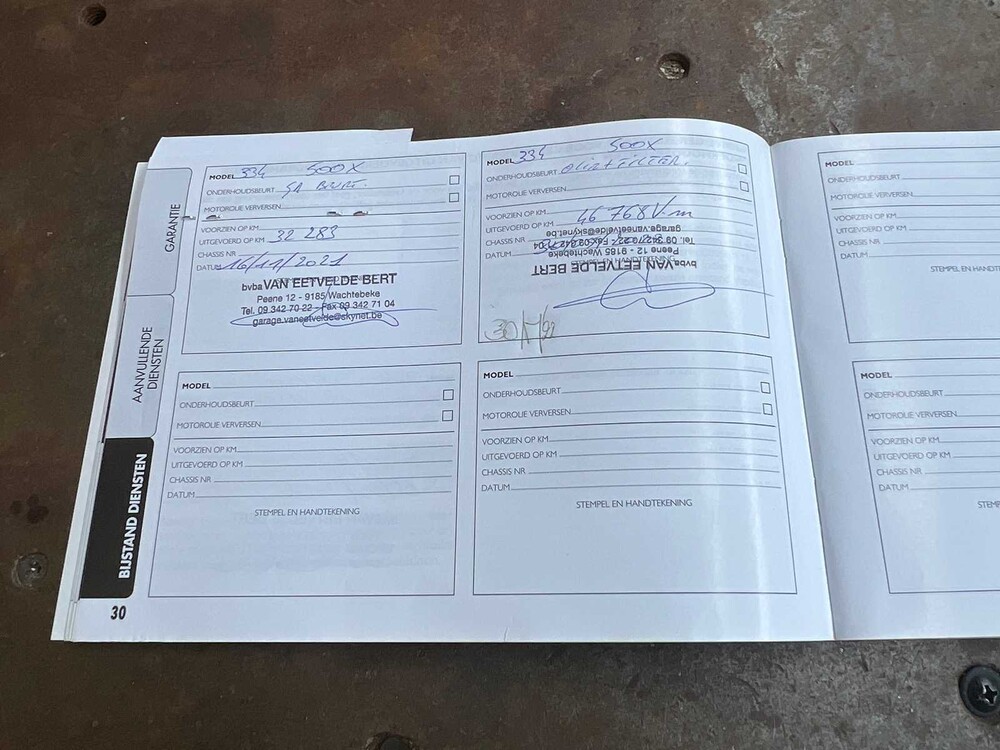 GARANTIE
AANVULLENDE
DIENSTEN
BIJSTAND DIENSTEN
30
MODEL 334 500X
ONDERHOUDSBEURT
MOTOROLIE VERVERSEN
VOORZIEN OP KM
UITGEVOERD OP KM 32 283
CHASSIS NR
DATUM 16/11/2021
bvba VAN EETVELDE BERT
Peene 12 - 9185 Wachtebeke
Tel. 09 342 70 22 - Fax 09 342 71 04
garage.vaneetvelde@skynet.be
MODEL 334 500X
ONDERHOUDSBEURT OLIE + FILTER.
MOTOROLIE VERVERSEN
VOORZIEN OP KM
UITGEVOERD OP KM 46 768
CHASSIS NR
DATUM
STEMPEL EN HANDTEKENING
bvba VAN EETVELDE BERT
Peene 12 - 9185 Wachtebeke
Tel. 09 342 70 22 - Fax 09 342 71 04
garage.vaneetvelde@skynet.be
MODEL
ONDERHOUDSBEURT
MOTOROLIE VERVERSEN
VOORZIEN OP KM
UITGEVOERD OP KM
CHASSIS NR
DATUM
STEMPEL EN HANDTEKENING
MODEL
ONDERHOUDSBEURT
MOTOROLIE VERVERSEN
VOORZIEN OP KM
UITGEVOERD OP KM
CHASSIS NR
DATUM
STEMPEL EN HANDTEKENING
MODEL
ONDERHOUDSBEURT
MOTOROLIE VERVERSEN
VOORZIEN OP KM
UITGEVOERD OP KM
CHASSIS NR
DATUM
STEMPEL EN HANDTEK
MODEL
ONDERHOUDSBEURT
MOTOROLIE VERVERSEN
VOORZIEN OP KM
UITGEVOERD OP KM
CHASSIS NR
DATUM
STEMP